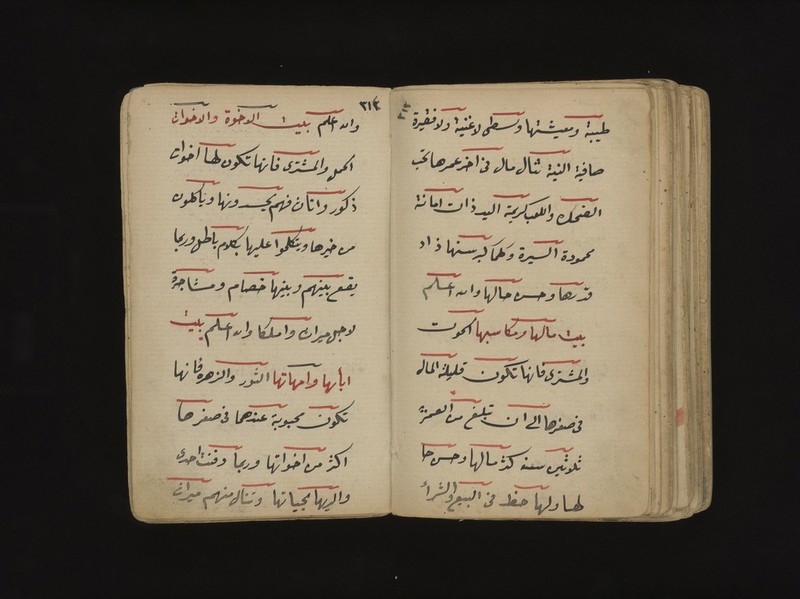 ٣١٣
طيبة ومعيشتها وسطى لا غنية ولا فقيرة
صافية النية تنال مال فى اخر عمرها تحب
الضحك واللعب كريمة اليد ذات امانة
محمودة السيرة وكلما كبر سنها زاد
قدرها وحسن حالها والله اعلم
بيت مالها ومكاسبها الحوت
والمشترى فانها تكون قليلة المال
فى صغرها الى ان تبلغ من العمر
ثلاثين سنة كثر مالها وحسن حا
لها ولها حظ فى البيع والشراء
٣١٤
والله اعلم بيت الاخوة والاخوات
الحمل والمشترى فانها تكون لها اخوات
ذكور واناث فهم يحسدونها وياكلون
من خيرها ويتكلموا عليها بكلام باطل وربما
يقع بينهم وبينها خصام ومشاجرة
لاجل ميراث واملاكا والله اعلم بيت
ابائها وامهاتها الثور والزهرة فانها
تكون محبوبة عندهما فى صغرها
اكثر من اخواتها وربما دفنت احدى
والديها بحياتها وتنال منهم ميراث